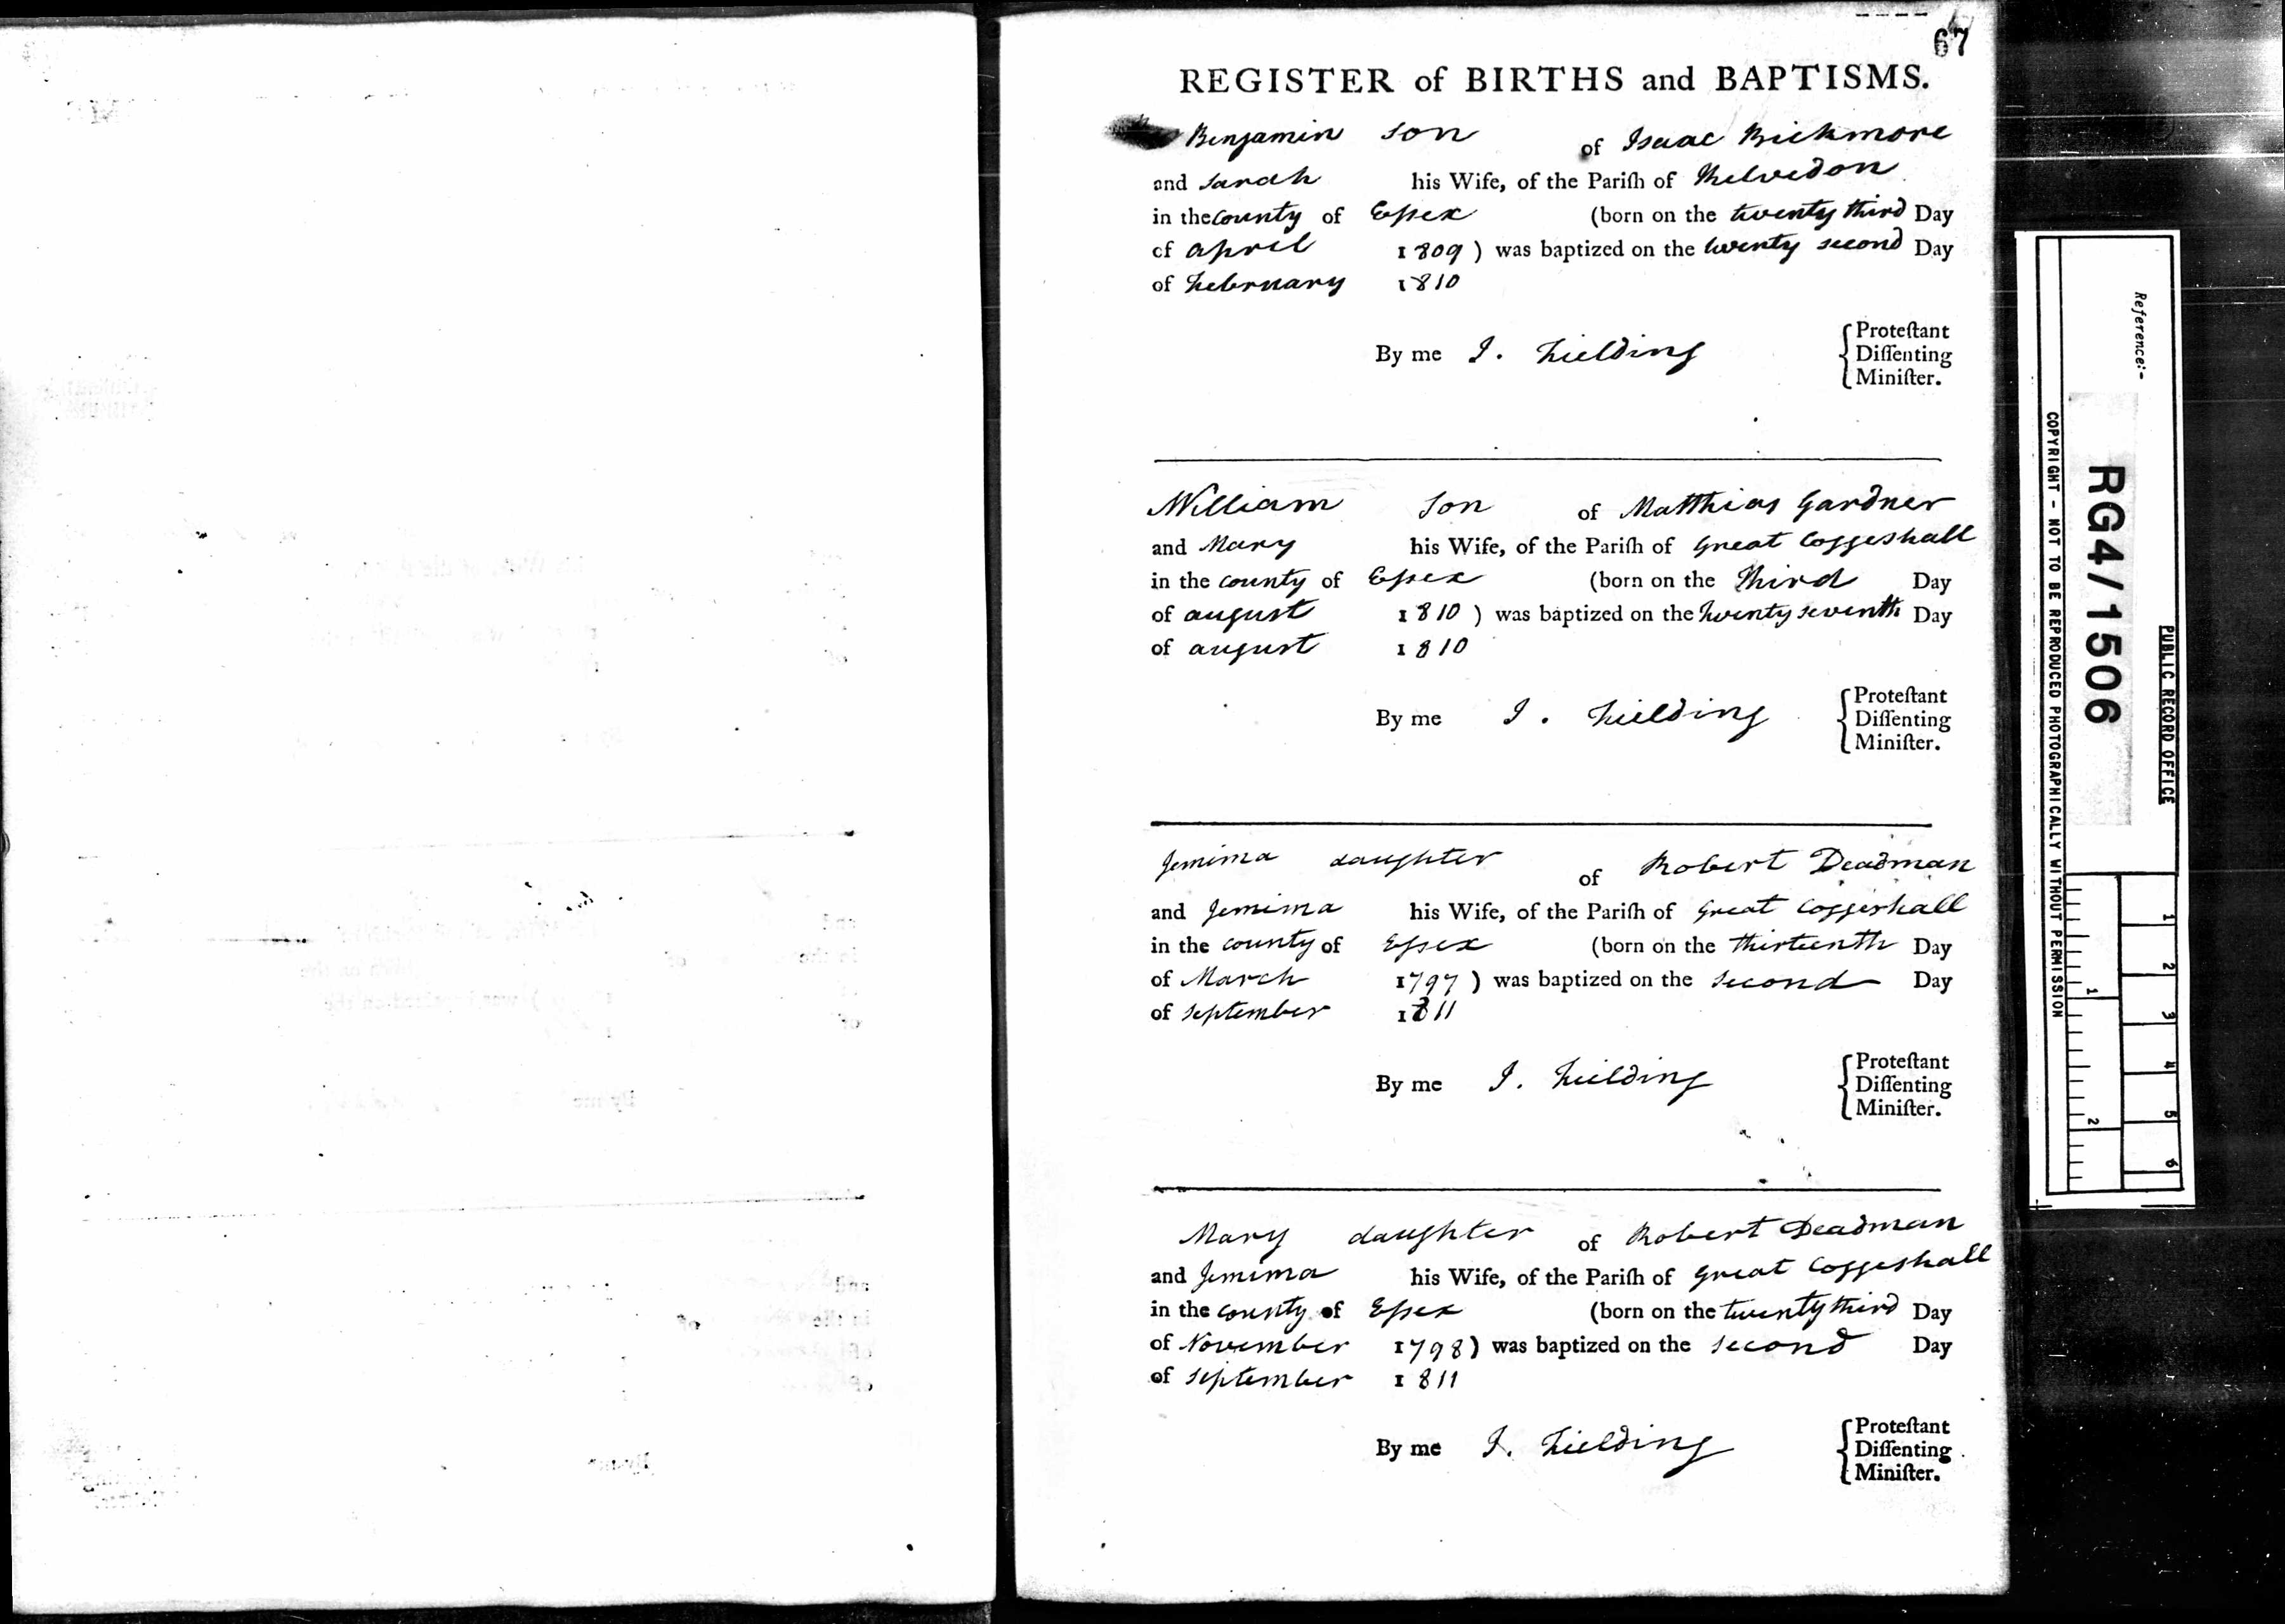 67
REGISTER of BIRTHS and BAPTISMS.
Benjamin son of Isaac Bickmore
and Sarah his Wife, of the Pariſh of Kelvedon
in the county of Eſsex (born on the twenty third Day
of april 1809) was baptized on the twenty second Day
of February 1810
By me I. Fielding
Proteſtant
Diſſenting
Miniſter.
William Son of Matthias Gardner
and Mary his Wife, of the Pariſh of Great Coggeshall
in the county of Eſsex (born on the third Day
of august 1810) was baptized on the twenty seventh Day
of august 1810
By me I. Fielding
Proteſtant
Diſſenting
Miniſter.
Jemima daughter of Robert Deadman
and Jemima his Wife, of the Pariſh of Great Coggeshall
in the county of Eſsex (born on the thirteenth Day
of March 1797) was baptized on the second Day
of September 1811
By me I. Fielding
Proteſtant
Diſſenting
Miniſter.
Mary daughter of Robert Deadman
and Jemima his Wife, of the Pariſh of Great Coggeshall
in the county of Eſsex (born on the twenty third Day
of November 1798) was baptized on the second Day
of September 1811
By me I. Fielding
Proteſtant
Diſſenting
Miniſter.
PUBLIC RECORD OFFICE
Reference:-
RG4/1506
COPYRIGHT - NOT TO BE REPRODUCED PHOTOGRAPHICALLY WITHOUT PERMISSION
1 2 3 4 5 6
1 2